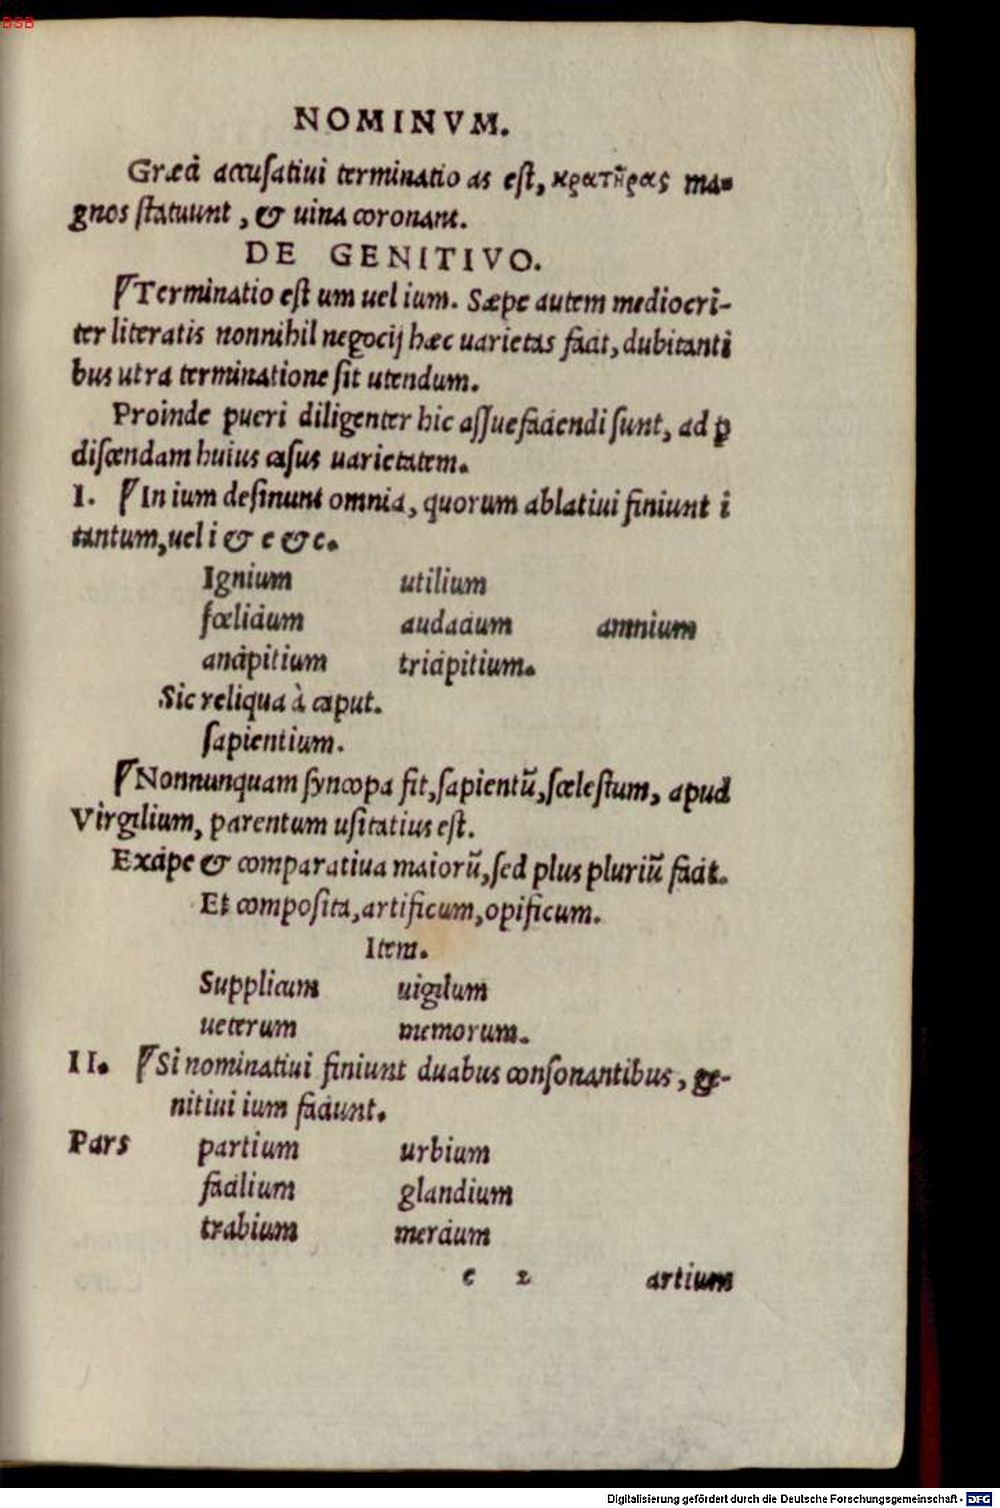 BSB
NOMINVM.
Græci accusatiui terminatio as est, κρατῆρας ma-
gnos statuunt, & uina coronant.
DE GENITIVO.
¶Terminatio est um uel ium. Sæpe autem mediocri-
ter literatis nonnihil negocij hæc uarietas facit, dubitanti
bus utra terminatione sit utendum.
Proinde pueri diligenter hic assuefaciendi sunt, ad ꝑ
discendam huius casus uarietatem.
I. ¶In ium desinunt omnia, quorum ablatiui finiunt i
tantum, uel i & e & c.
Ignium utilium
fœlicium audacium amnium
ancipitium tricipitium.
Sic reliqua à caput.
sapientium.
¶Nonnunquam syncopa fit, sapientũ, scelestum, apud
Virgilium, parentum usitatius est.
Excipe & comparatiua maiorũ, sed plus pluriũ facit.
Et composita, artificum, opificum.
Item.
Supplicum uigilum
ueterum memorum.
II. ¶Si nominatiui finiunt duabus consonantibus, ge-
nitiui ium faciunt.
Pars partium urbium
facilium glandium
trabium mercium
c 2 artium
Digitalisierung gefördert durch die Deutsche Forschungsgemeinschaft - DFG